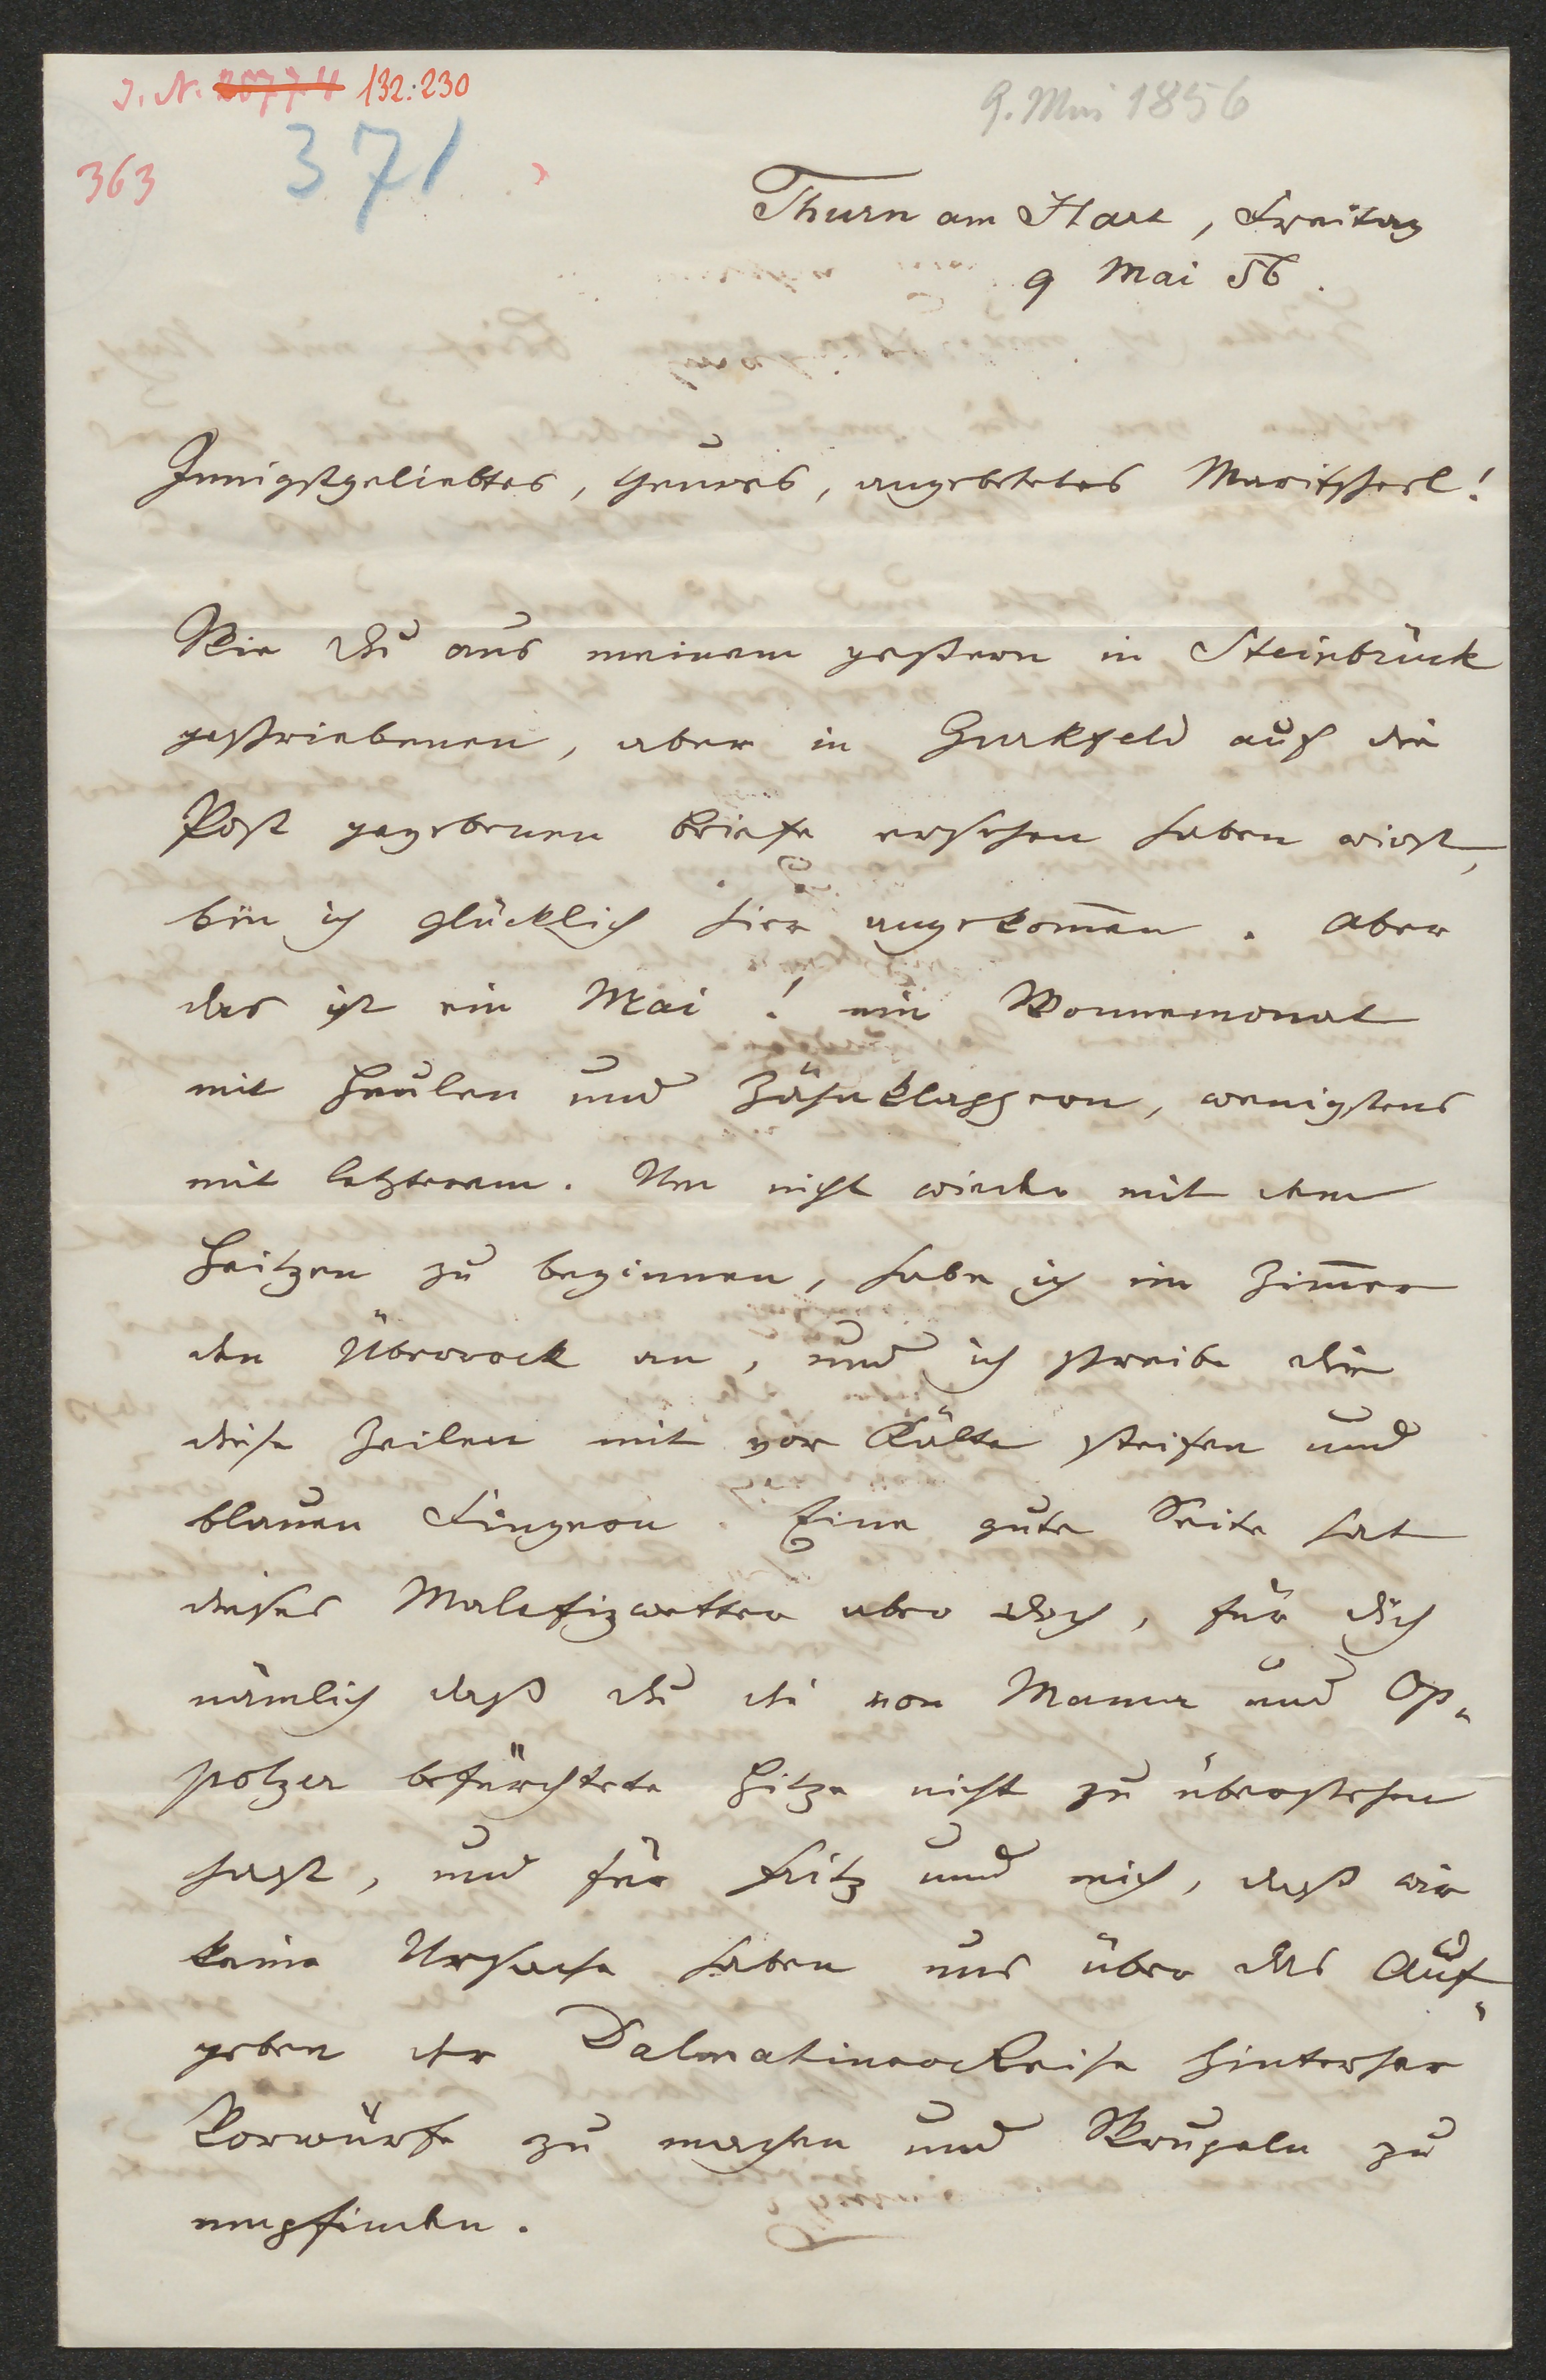 J. N. 20774 132.230
9. Mai 1856
363
371
Thurn am Hart, Freitag
9 Mai 56.
Innigstgeliebtes, theures, angebetetes Maritscherl!
Wie Du aus meinem gestern in Steinbrück
geschriebenen, aber in Gurkfeld auf die
Post gegebenen Briefe ersehen haben wirst,
bin ich glücklich hier angekom̄en. Aber
das ist ein Mai! ein Wonnemonat
mit Heulen und Zähneklappern, wenigstens
mit letzterem. Um nicht wieder mit dem
Heitzen zu beginnen, habe ich im Zim̄er
den Überrock an, und ich schreibe Dir
diese Zeilen mit vor Kälte steifen und
blauen Fingern. Eine gute Seite hat
dieses Malefizwetter aber doch, für Dich
nämlich daß Du die von Mama und Op-
polzer befürchtete Hitze nicht zu überstehen
hast, und für Fritz und mich, daß wir
keine Ursache haben uns über das Auf-
geben der Dalmatinerreise hinterher
Vorwürfe zu machen und Skrupeln zu
empfinden.